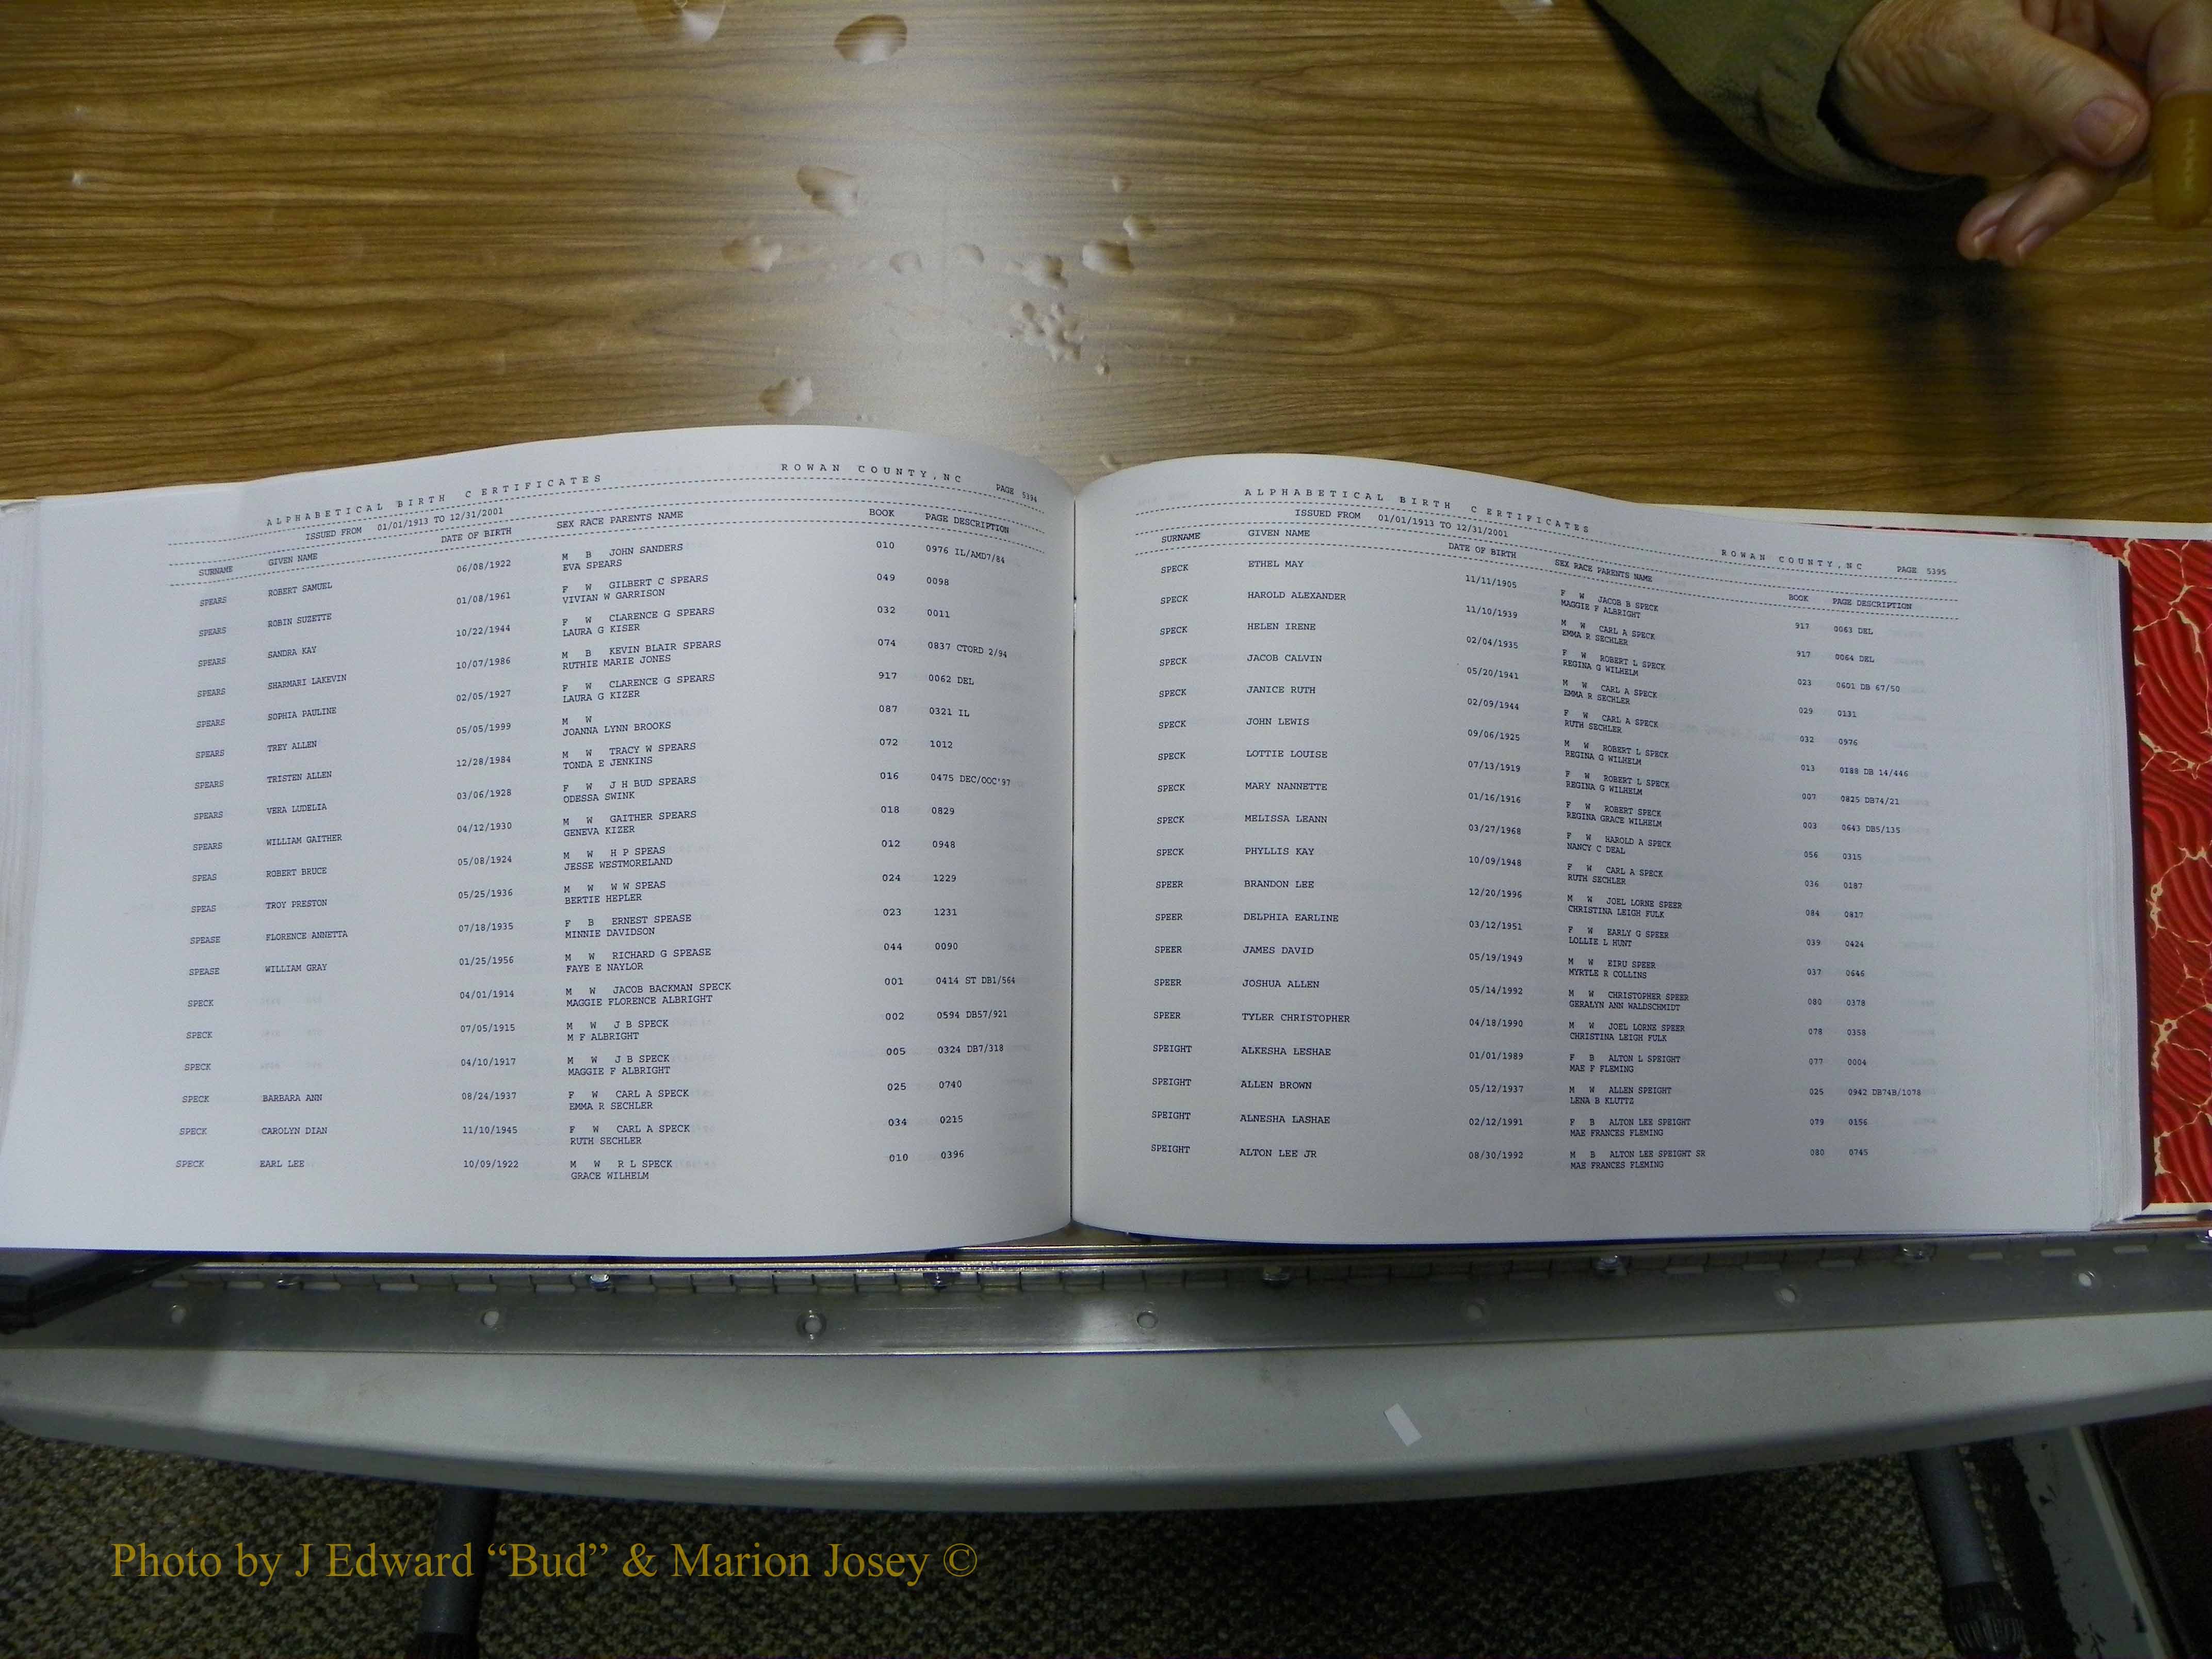 ALPHABETICAL BIRTH CERTIFICATES ROWAN COUNTY,NC PAGE 5394
ISSUED FROM 01/01/1913 TO 12/31/2001
SURNAME GIVEN NAME DATE OF BIRTH SEX RACE PARENTS NAME BOOK PAGE DESCRIPTION
SPEARS ROBERT SAMUEL 06/08/1922 M B JOHN SANDERS 010 0976 IL/AMD7/84
EVA SPEARS
SPEARS ROBIN SUZETTE 01/08/1961 F W GILBERT C SPEARS 049 0098
VIVIAN W GARRISON
SPEARS SANDRA KAY 10/22/1944 F W CLARENCE G SPEARS 032 0011
LAURA G KISER
SPEARS SHARMARI LAKEVIN 10/07/1986 M B KEVIN BLAIR SPEARS 074 0837 CTORD 2/94
RUTHIE MARIE JONES
SPEARS SOPHIA PAULINE 02/05/1927 F W CLARENCE G SPEARS 917 0062 DEL
LAURA G KIZER
SPEARS TREY ALLEN 05/05/1999 M W 087 0321 IL
JOANNA LYNN BROOKS
SPEARS TRISTEN ALLEN 12/28/1984 M W TRACY W SPEARS 072 1012
TONDA E JENKINS
SPEARS VERA LUDELIA 03/06/1928 F W J H BUD SPEARS 016 0475 DEC/OOC'97
ODESSA SWINK
SPEARS WILLIAM GAITHER 04/12/1930 M W GAITHER SPEARS 018 0829
GENEVA KIZER
SPEAS ROBERT BRUCE 05/08/1924 M W H P SPEAS 012 0948
JESSE WESTMORELAND
SPEAS TROY PRESTON 05/25/1936 M W W W SPEAS 024 1229
BERTIE HEPLER
SPEASE FLORENCE ANNETTA 07/18/1935 F B ERNEST SPEASE 023 1231
MINNIE DAVIDSON
SPEASE WILLIAM GRAY 01/25/1956 M W RICHARD G SPEASE 044 0090
FAYE E NAYLOR
SPECK 04/01/1914 M W JACOB BACKMAN SPECK 001 0414 ST DB1/564
MAGGIE FLORENCE ALBRIGHT
SPECK 07/05/1915 M W J B SPECK 002 0594 DB57/921
M F ALBRIGHT
SPECK 04/10/1917 M W J B SPECK 005 0324 DB7/318
MAGGIE F ALBRIGHT
SPECK BARBARA ANN 08/24/1937 F W CARL A SPECK 025 0740
EMMA R SECHLER
SPECK CAROLYN DIAN 11/10/1945 F W CARL A SPECK 034 0215
RUTH SECHLER
SPECK EARL LEE 10/09/1922 M W R L SPECK 010 0396
GRACE WILHELM
ALPHABETICAL BIRTH CERTIFICATES ROWAN COUNTY,NC PAGE 5395
ISSUED FROM 01/01/1913 TO 12/31/2001
SURNAME GIVEN NAME DATE OF BIRTH SEX RACE PARENTS NAME BOOK PAGE DESCRIPTION
SPECK ETHEL MAY 11/11/1905 F W JACOB B SPECK 917 0063 DEL
MAGGIE F ALBRIGHT
SPECK HAROLD ALEXANDER 11/10/1939 M W CARL A SPECK 917 0064 DEL
EMMA R SECHLER
SPECK HELEN IRENE 02/04/1935 F W ROBERT L SPECK 023 0601 DB 67/50
REGINA G WILHELM
SPECK JACOB CALVIN 05/20/1941 M W CARL A SPECK 029 0131
EMMA R SECHLER
SPECK JANICE RUTH 02/09/1944 F W CARL A SPECK 032 0976
RUTH SECHLER
SPECK JOHN LEWIS 09/06/1925 M W ROBERT L SPECK 013 0188 DB 14/446
REGINA G WILHELM
SPECK LOTTIE LOUISE 07/13/1919 F W ROBERT L SPECK 007 0825 DB74/21
REGINA G WILHELM
SPECK MARY NANNETTE 01/16/1916 F W ROBERT SPECK 003 0643 DB5/135
REGINA GRACE WILHELM
SPECK MELISSA LEANN 03/27/1968 F W HAROLD A SPECK 056 0315
NANCY C DEAL
SPECK PHYLLIS KAY 10/09/1948 F W CARL A SPECK 036 0187
RUTH SECHLER
SPEER BRANDON LEE 12/20/1996 M W JOEL LORNE SPEER 084 0817
CHRISTINA LEIGH FULK
SPEER DELPHIA EARLINE 03/12/1951 F W EARLY G SPEER 039 0424
LOLLIE L HUNT
SPEER JAMES DAVID 05/19/1949 M W EIRU SPEER 037 0646
MYRTLE R COLLINS
SPEER JOSHUA ALLEN 05/14/1992 M W CHRISTOPHER SPEER 080 0378
GERALYN ANN WALDSCHMIDT
SPEER TYLER CHRISTOPHER 04/18/1990 M W JOEL LORNE SPEER 078 0358
CHRISTINA LEIGH FULK
SPEIGHT ALKESHA LESHAE 01/01/1989 F B ALTON L SPEIGHT 077 0004
MAE F FLEMING
SPEIGHT ALLEN BROWN 05/12/1937 M W ALLEN SPEIGHT 025 0942 DB74B/1078
LENA B KLUTTZ
SPEIGHT ALNESHA LASHAE 02/12/1991 F B ALTON LEE SPEIGHT 079 0156
MAE FRANCES FLEMING
SPEIGHT ALTON LEE JR 08/30/1992 M B ALTON LEE SPEIGHT SR 080 0745
MAE FRANCES FLEMING
Photo by J Edward “Bud” & Marion Josey ©